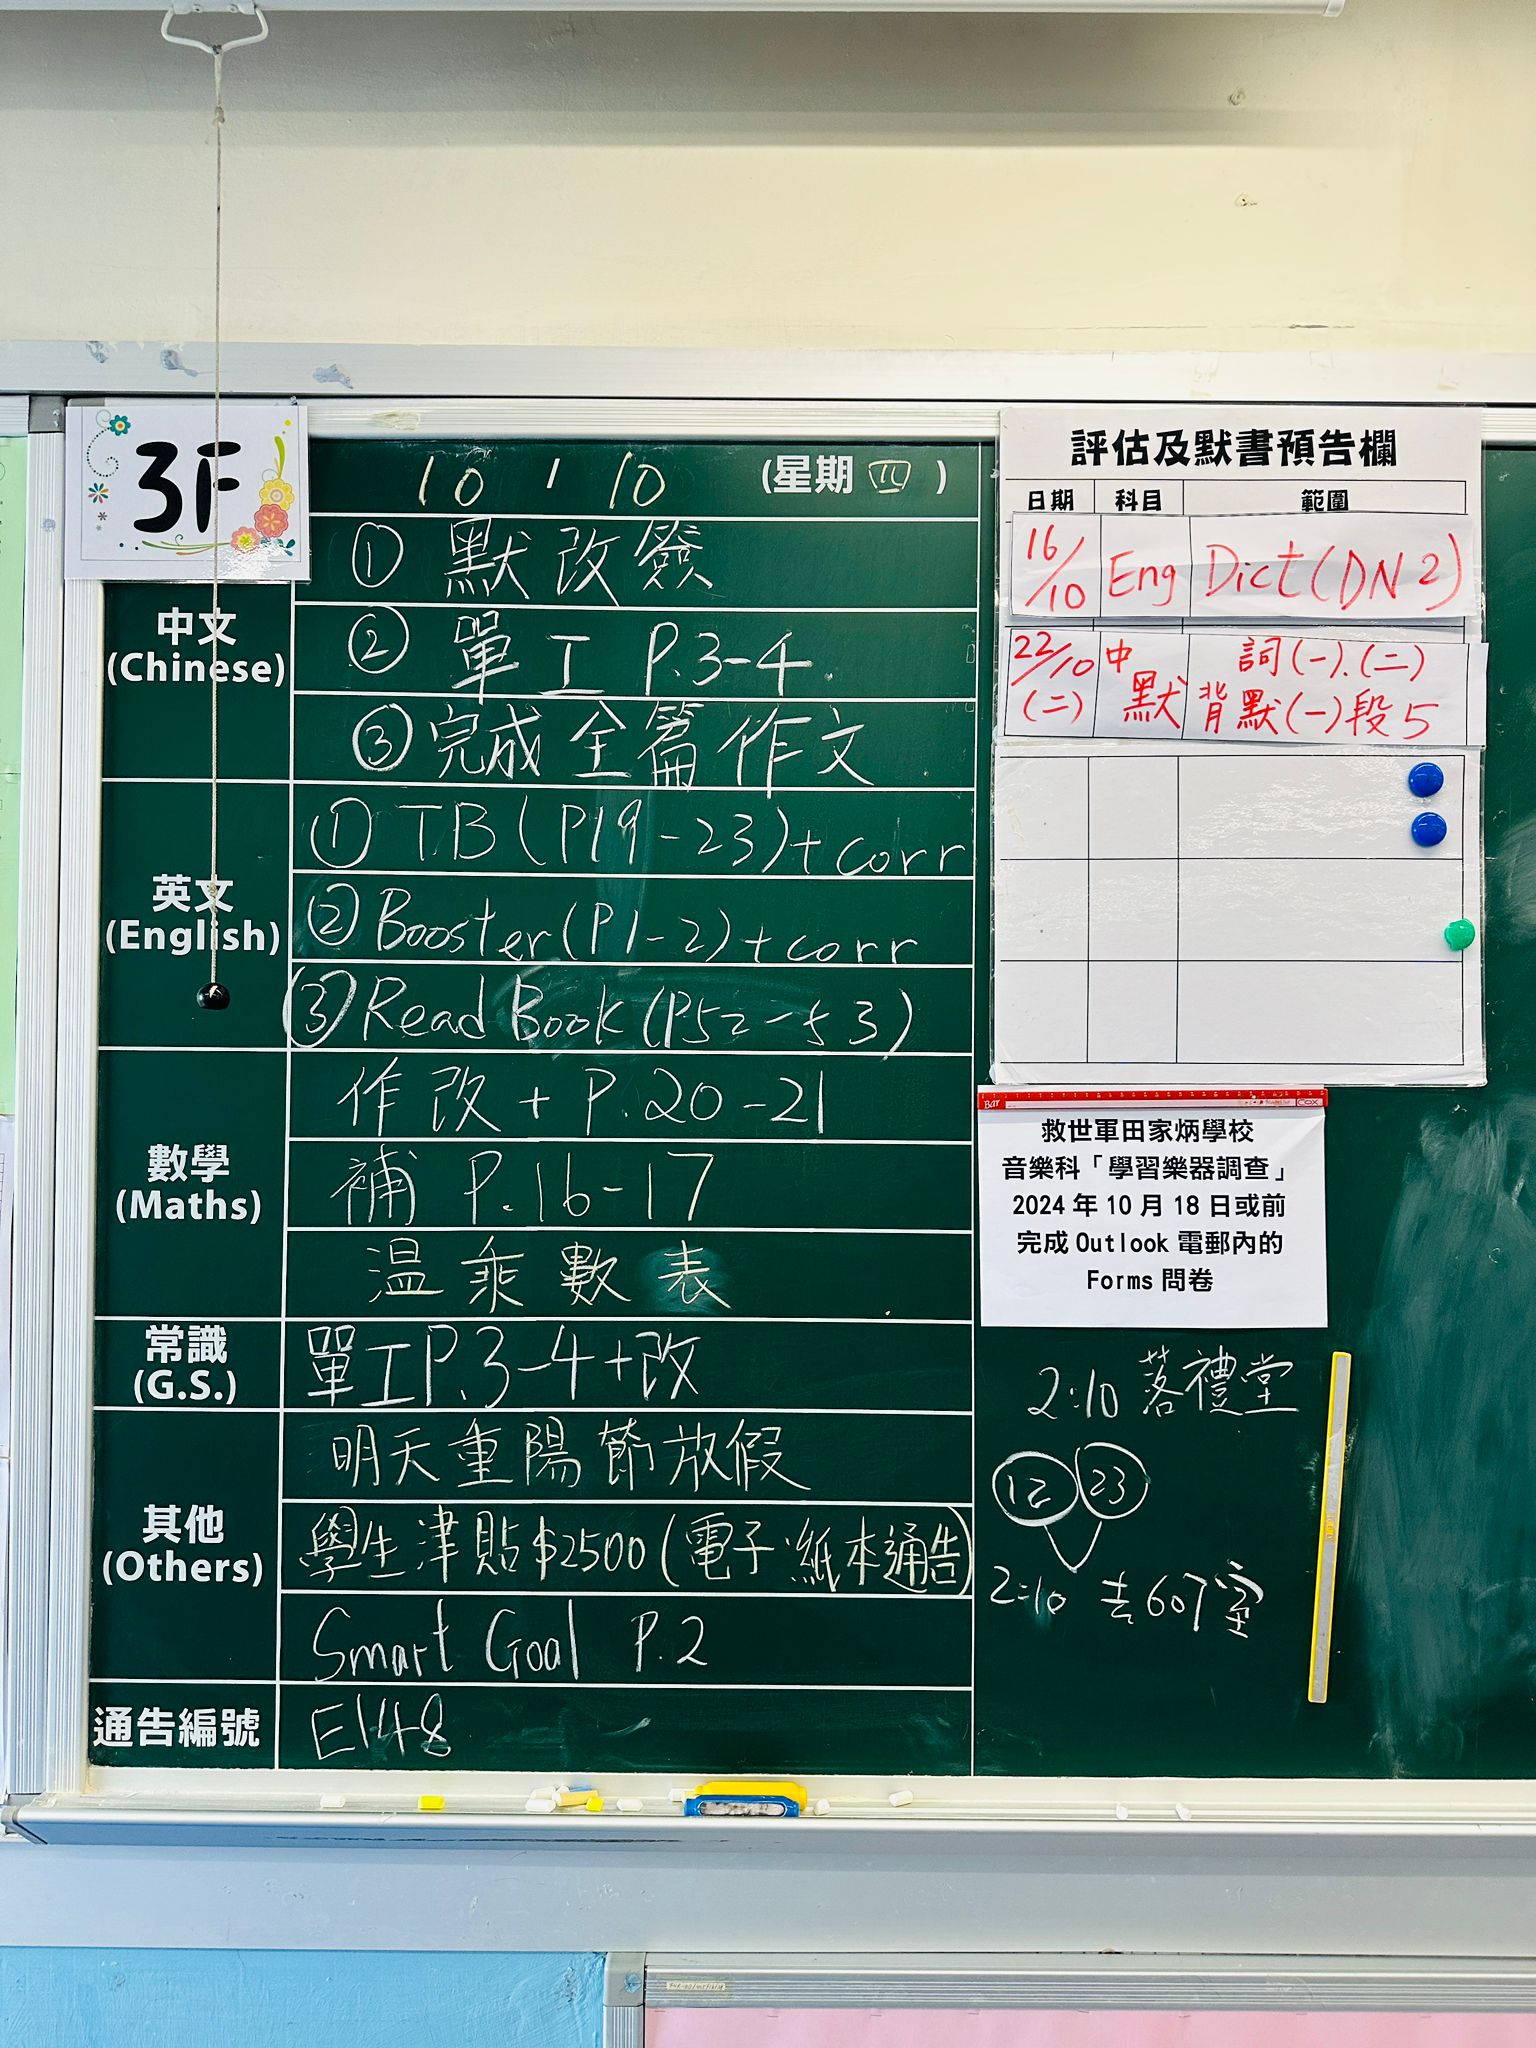 3F
10 / 10 (星期 四 )
中文
(Chinese)
① 默改簽
② 單工 P.3-4
③ 完成全篇作文
英文
(English)
① T.B (P19-23)+corr
② Booster (P1-2)+corr
③ Read Book (P52-53)
數學
(Maths)
作改 + P.20-21
補 P.16-17
溫乘數表
常識
(G.S.)
單工P.3-4+改
其他
(Others)
明天重陽節放假
學生津貼$2500 (電子、紙本通告)
Smart Goal P.2
通告編號
E148
評估及默書預告欄
日期 科目 範圍
16/10 Eng Dict (DN 2)
22/10 (二) 中默 詞(一).(二)
背默(一)段5
Bar COX
救世軍田家炳學校
音樂科「學習樂器調查」
2024 年 10 月 18 日或前
完成 Outlook 電郵內的
Forms 問卷
2:10 落禮堂
12 23
2:10 去607室